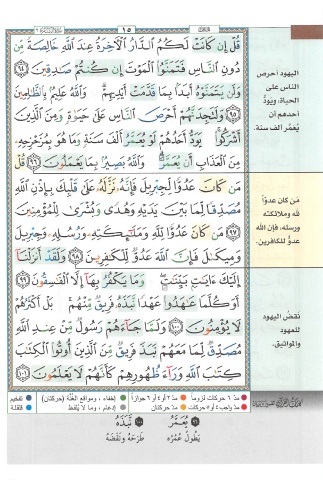 سورة البقرة ٢
١٥
الجزء ١
قُلْ إِن كَانَتْ لَكُمُ الدَّارُ الْآخِرَةُ عِندَ اللَّهِ خَالِصَةً مِّن
دُونِ النَّاسِ فَتَمَنَّوُا الْمَوْتَ إِن كُنتُمْ صَادِقِينَ ٩٤
وَلَن يَتَمَنَّوْهُ أَبَدًا بِمَا قَدَّمَتْ أَيْدِيهِمْ وَاللَّهُ عَلِيمٌ بِالظَّالِمِينَ
٩٥ وَلَتَجِدَنَّهُمْ أَحْرَصَ النَّاسِ عَلَىٰ حَيَاةٍ وَمِنَ الَّذِينَ
أَشْرَكُوا يَوَدُّ أَحَدُهُمْ لَوْ يُعَمَّرُ أَلْفَ سَنَةٍ وَمَا هُوَ بِمُزَحْزِحِهِ
مِنَ الْعَذَابِ أَن يُعَمَّرَ وَاللَّهُ بَصِيرٌ بِمَا يَعْمَلُونَ ٩٦ قُلْ
مَن كَانَ عَدُوًّا لِّجِبْرِيلَ فَإِنَّهُ نَزَّلَهُ عَلَىٰ قَلْبِكَ بِإِذْنِ اللَّهِ
مُصَدِّقًا لِّمَا بَيْنَ يَدَيْهِ وَهُدًى وَبُشْرَىٰ لِلْمُؤْمِنِينَ
٩٧ مَن كَانَ عَدُوًّا لِّلَّهِ وَمَلَائِكَتِهِ وَرُسُلِهِ وَجِبْرِيلَ
وَمِيكَالَ فَإِنَّ اللَّهَ عَدُوٌّ لِّلْكَافِرِينَ ٩٨ وَلَقَدْ أَنزَلْنَا
إِلَيْكَ آيَاتٍ بَيِّنَاتٍ وَمَا يَكْفُرُ بِهَا إِلَّا الْفَاسِقُونَ ٩٩
أَوَكُلَّمَا عَاهَدُوا عَهْدًا نَّبَذَهُ فَرِيقٌ مِّنْهُم بَلْ أَكْثَرُهُمْ
لَا يُؤْمِنُونَ ١٠٠ وَلَمَّا جَاءَهُمْ رَسُولٌ مِّنْ عِندِ اللَّهِ
مُصَدِّقٌ لِّمَا مَعَهُمْ نَبَذَ فَرِيقٌ مِّنَ الَّذِينَ أُوتُوا الْكِتَابَ
كِتَابَ اللَّهِ وَرَاءَ ظُهُورِهِمْ كَأَنَّهُمْ لَا يَعْلَمُونَ ١٠١
اليهود أحرص
الناس على
الحياة، ويودُّ
أحدهم أن
يُعَمَّر ألف سنة.
مَن كان عدوّاً
لله وملائكته
ورسله، فإن الله
عدوٌّ للكافرين.
نقضُ اليهود
للعهود
والمواثيق.
مدّ ٦ حركات لزوماً
مدّ ٢ أو ٤ أو ٦ جوازاً
إخفاء، ومواقع الغُنَّة (حركتان)
تفخيم
مدّ واجب ٤ أو ٥ حركات
مدّ حركتان
إدغام، وما لا يُلفظ
قلقلة
٩٦ يُعَمَّرُ
يَطُولُ عُمُرُهُ
١٠٠ نَبَذَهُ
طَرَحَهُ وَنَقَضَهُ